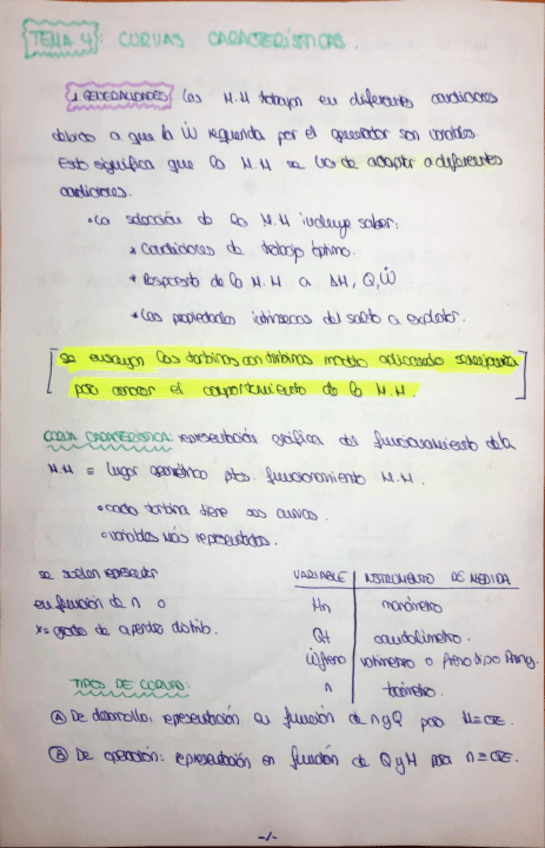 TEMA 4: CURVAS CARACTERÍSTICAS.
1. GENERALIDADES Las M.H trabajan en diferentes condiciones
debido a que la Ẇ requerida por el generador son variables.
Esto significa que la M.H se ha de adaptar a diferentes
condiciones.
• La selección de la M.H incluye saber:
* Condiciones de trabajo óptimo.
* Respuesta de la M.H a ΔH, Q, Ẇ
* Las propiedades intrínsecas del salto a explotar.
[se ensayan las turbinas con turbinas modelo aplicando semejanza
para conocer el comportamiento de la M.H.]
CURVA CARACTERÍSTICA: representación gráfica del funcionamiento de la
M.H = lugar geométrico pts. funcionamiento M.H.
• cada turbina tiene sus curvas.
• variables más representadas.
se suelen representar
en función de n o
x = grado de apertura distrib.
VARIABLE | INSTRUMENTO DE MEDIDA
Hn | manómetro
Qt | caudalímetro.
Ẇfreno | vatímetro o freno tipo Prony.
n | tacómetro.
TIPOS DE CURVAS:
Ⓐ De desarrollo: representación en función de n y Q para H = CTE.
Ⓑ De operación: representación en función de Q y H para n = CTE.
-1-